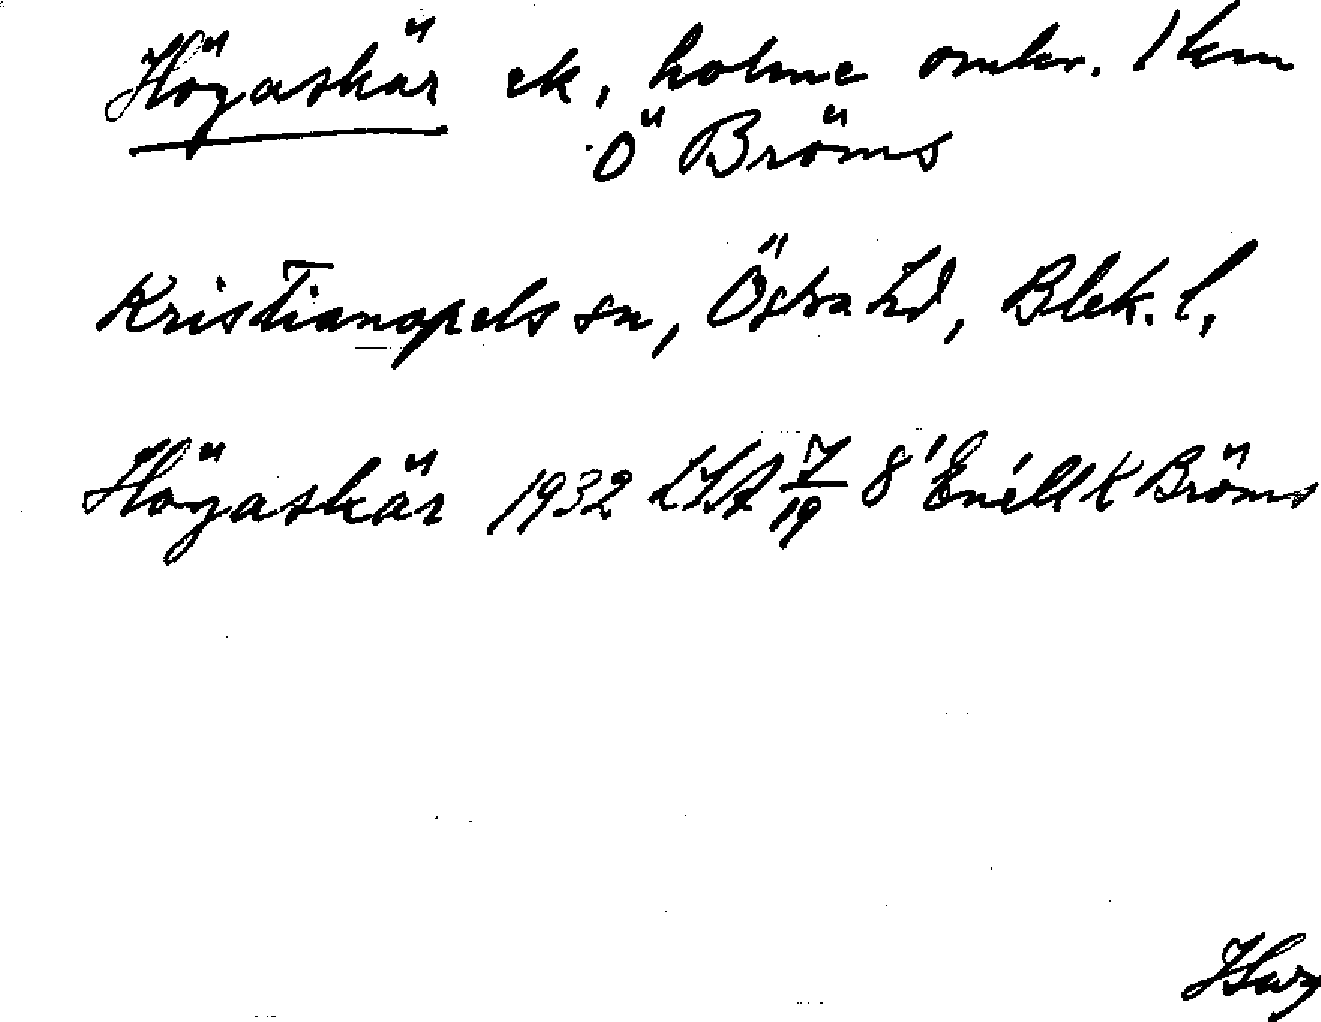 Högaskär ek, holme omkr. 1 km
Ö Bröms
Kristianopels sn, Östra hd, Blek. l,
Högaskär 1932 LSA 7/19 8' Enl. EK Bröms